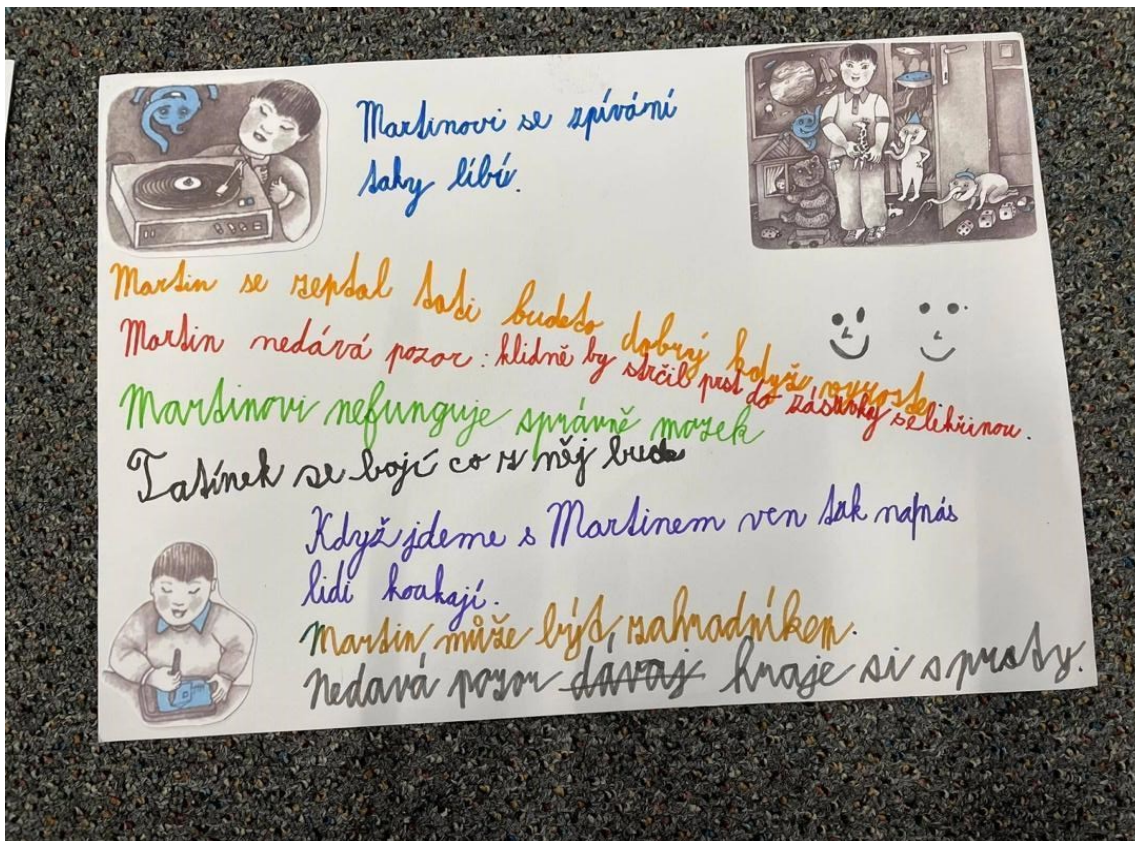 Martinovi se zpívání
taky líbí.
Martin se zeptal tati budeto dobrý když vyroste
Martin nedává pozor: klidně by strčil prst do zásuvky selekřinou.
Martinovi nefunguje správně mozek
Tatínek se bojí co z něj bude
Když jdeme s Martinem ven tak napnás
lidi koukají.
Martin může být zahradníkem.
Nedavá pozor dávaj hraje si s prsty.